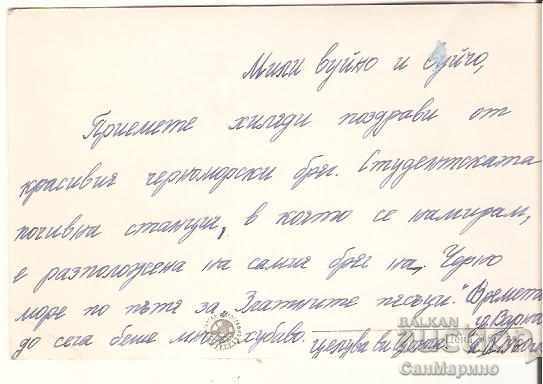 Мили вуйно и вуйчо,
Приемете хиляди поздрави от
красивия черноморски бряг. Студентската
почивна станция, в която се намирам,
е разположена на самия бряг на Черно
море по пътя за Златните пясъци." Времето
до сега беше много хубаво.
гр. Варна
Целува ви
BALKAN
auction
СанМарино